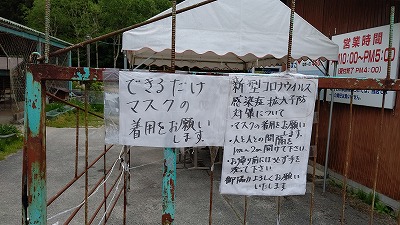 できるだけ
マスクの
着用をお願い
します。
新型コロナウイルス
感染症拡大予防
対策について
・マスクの着用をお願い
します。
・人と人との間隔を
1m〜2m開けて下さい
・お帰り前には必ず手を
洗って下さい
御協力よろしくお願い
いたします
営業時間
AM10:00〜PM5:00